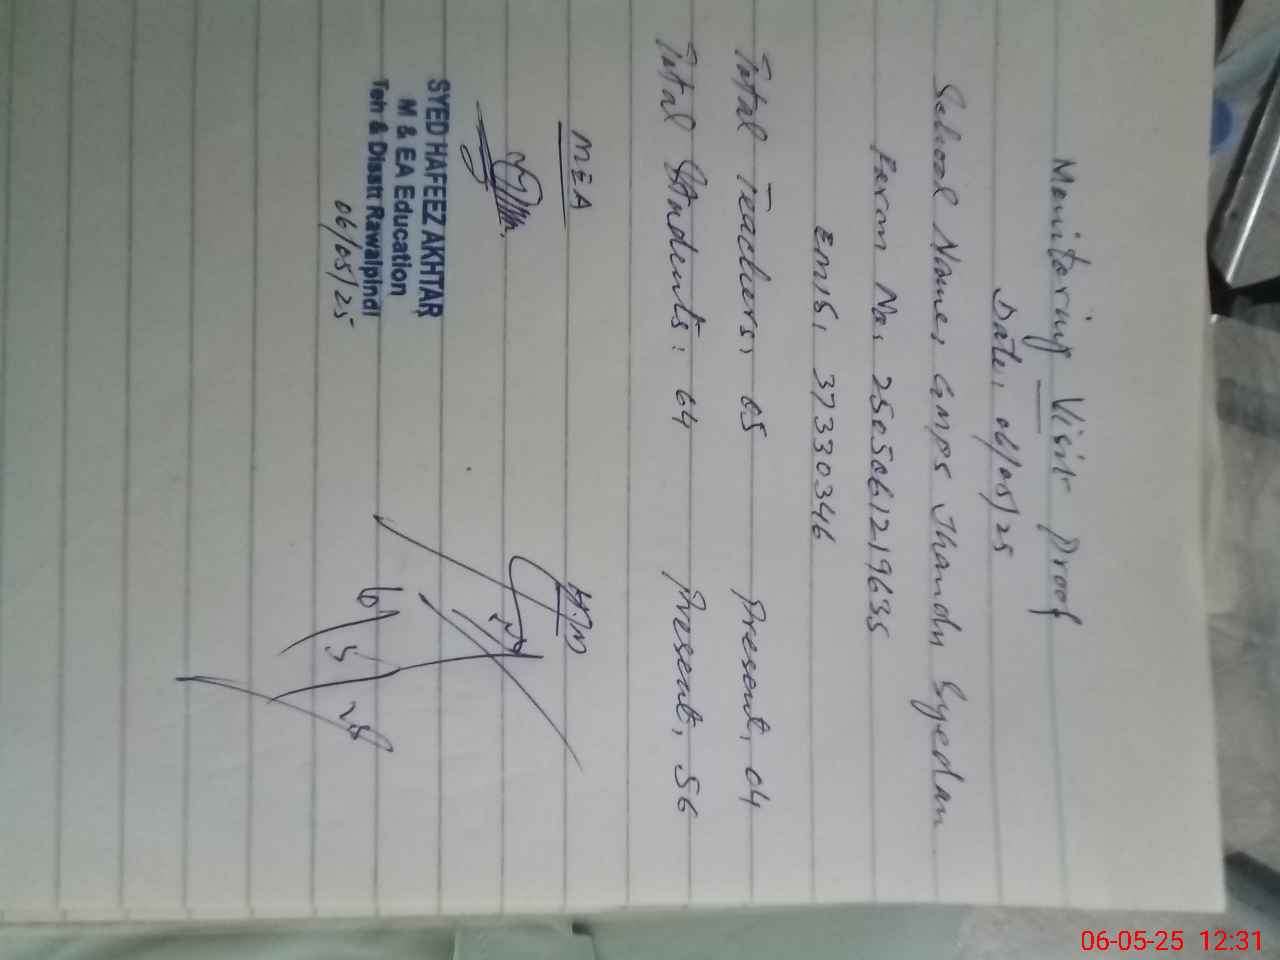 Monitoring Visit Proof
Date, 06/05/25
School Name, GMPS Jhandu Syedan
Farm No, 2505061219635
EMIS, 37330346
Total Teachers, 05 Present, 04
Total Students: 64 Present, 56
MEA H.M
SYED HAFEEZ AKHTAR
M & EA Education
Teh & Disstt Rawalpindi
06/05/25
6/5/25
06-05-25 12:31